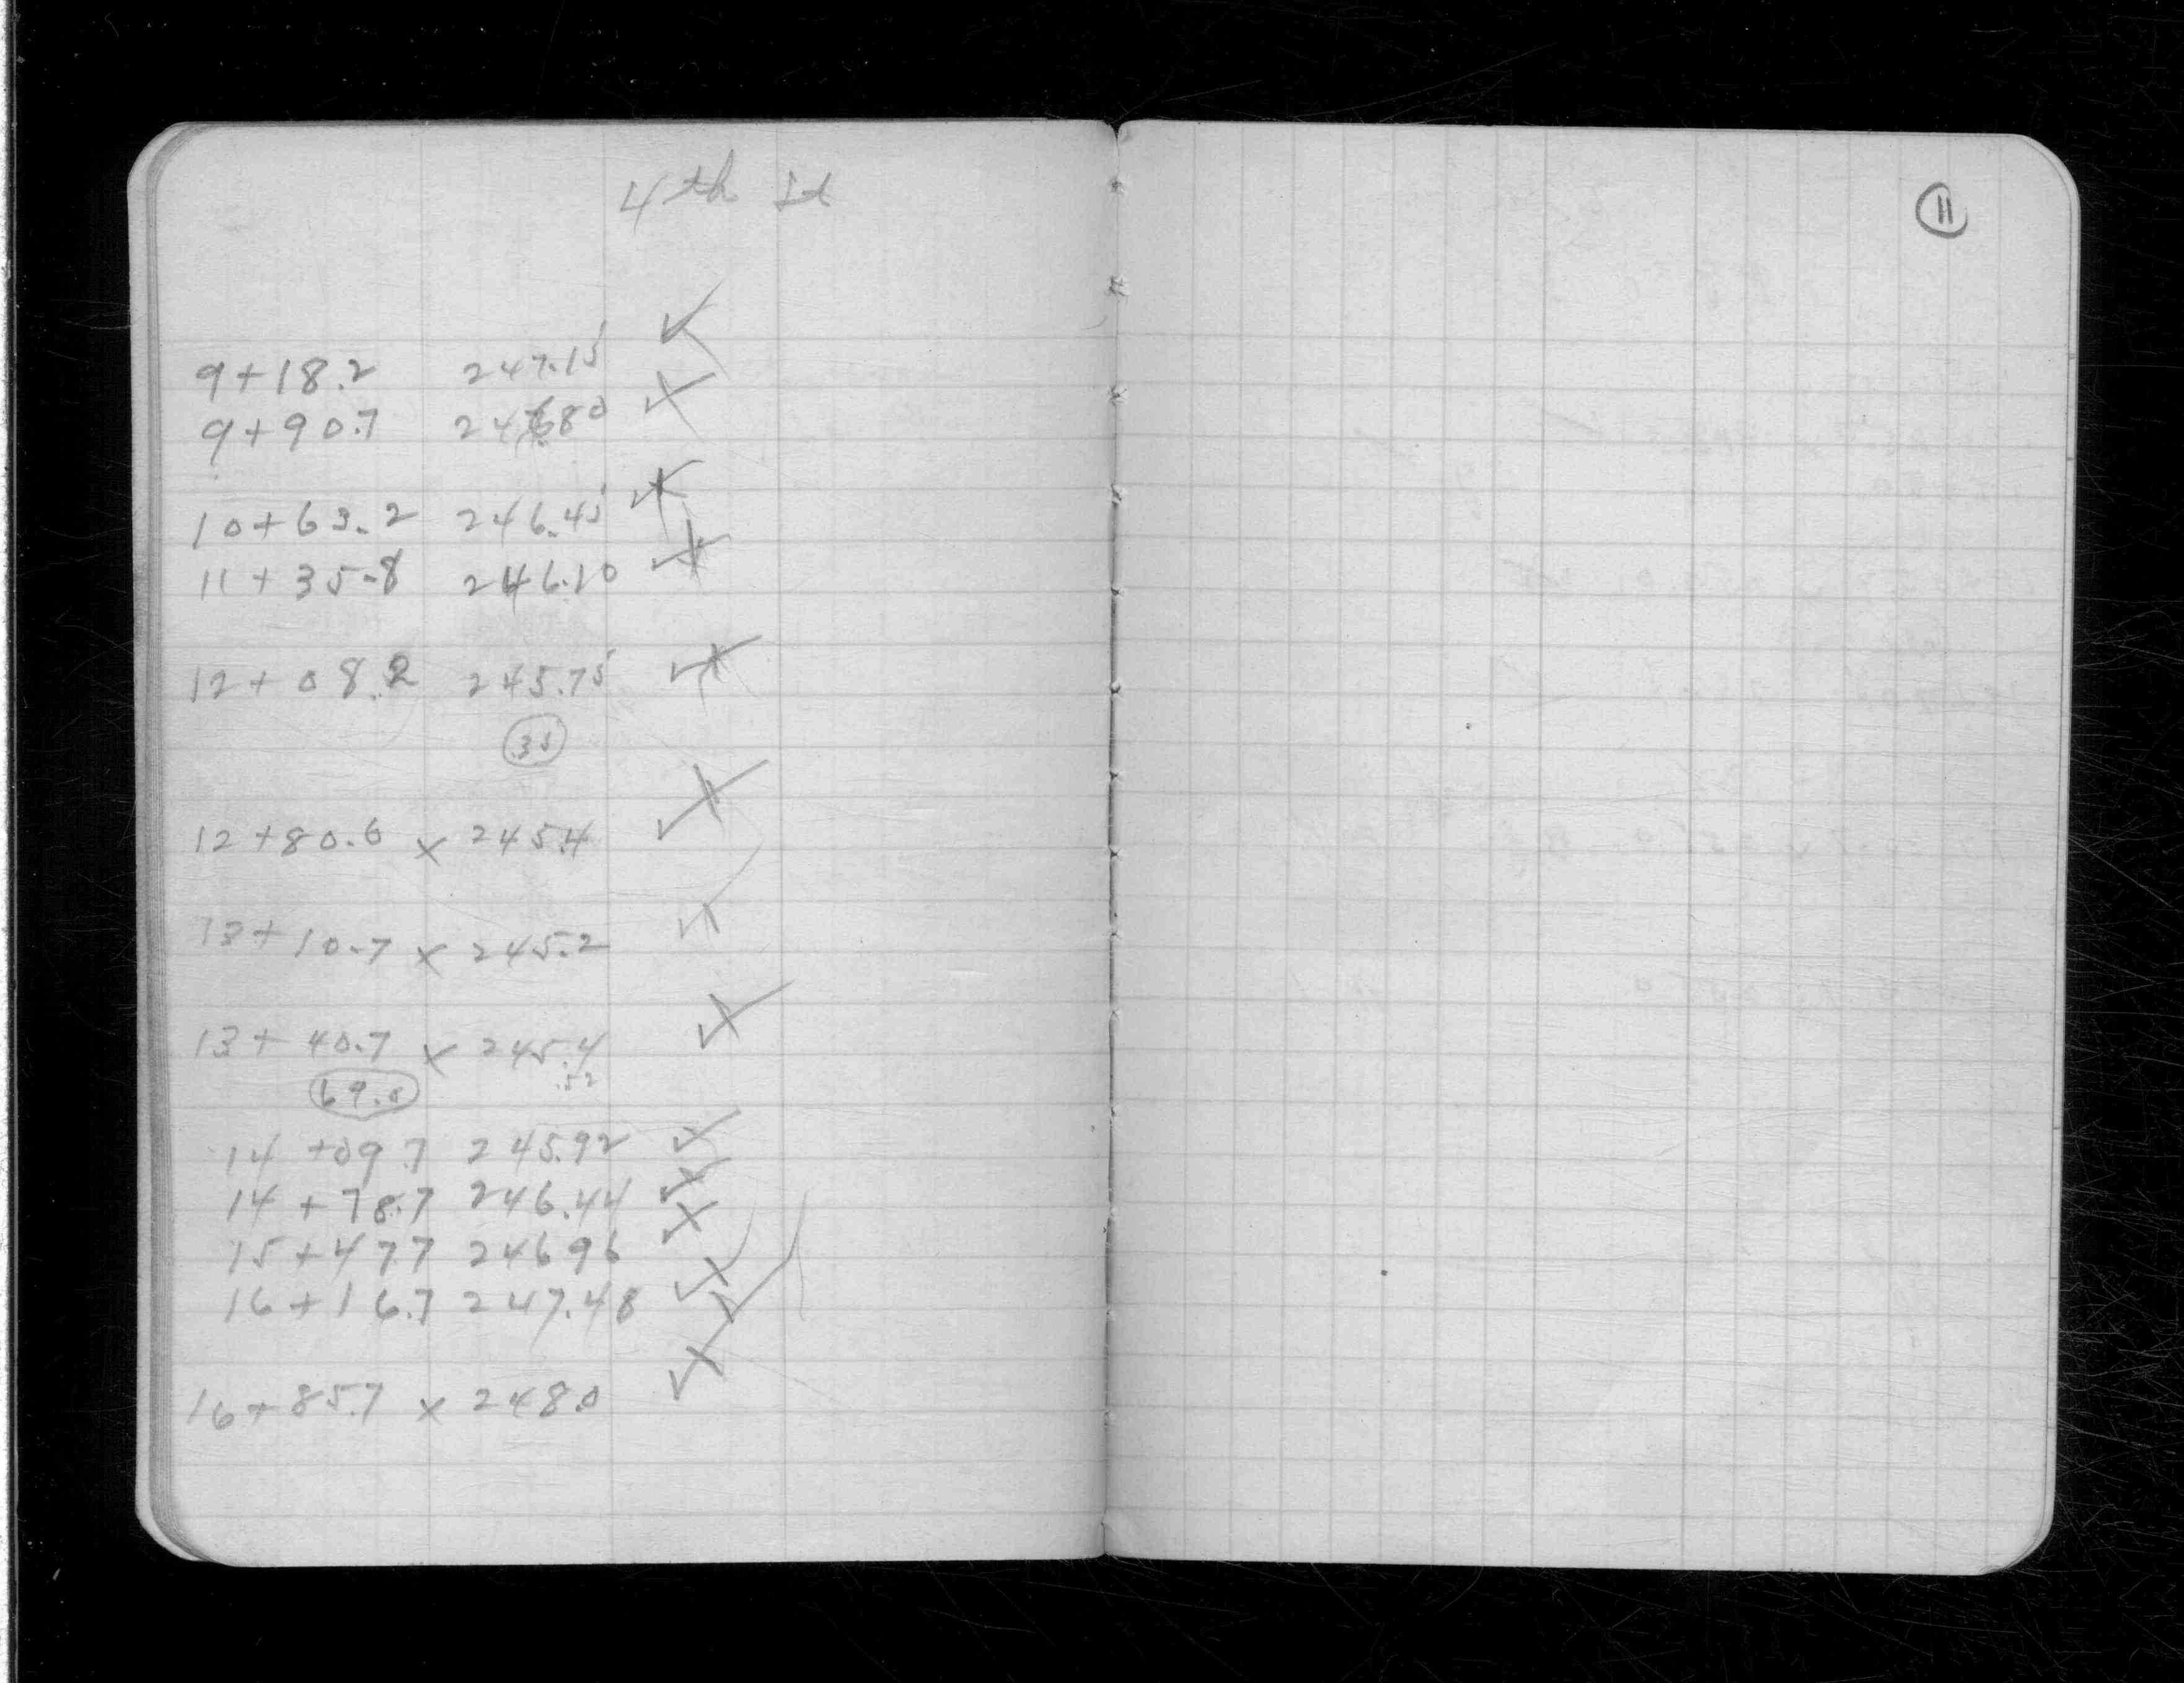 4th St
11
9+18.2 247.15 ✓
9+90.7 246.80 ✓
10+63.2 246.45 ✓
11+35.8 246.10 ✓
12+08.2 245.75 ✓
35
12+80.6 x 245.4 ✓
13+10.7 x 245.2 ✓
13+40.7 x 245.4 ✓
69.0 .52
14+09.7 245.92 ✓
14+78.7 246.44 ✓
15+47.7 246.96 ✓
16+16.7 247.48 ✓
16+85.7 x 248.0 ✓